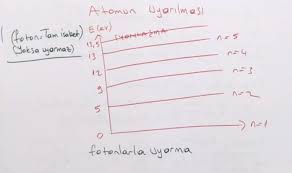 Atomun Uyarılması
(foton: Tam isabet)
(Yoksa uyarmaz)
E (eV)
13,5 İyonlaşma n=5
13 n=4
12 n=3
9
5 n=2
0 n=1
fotonlarla uyarma